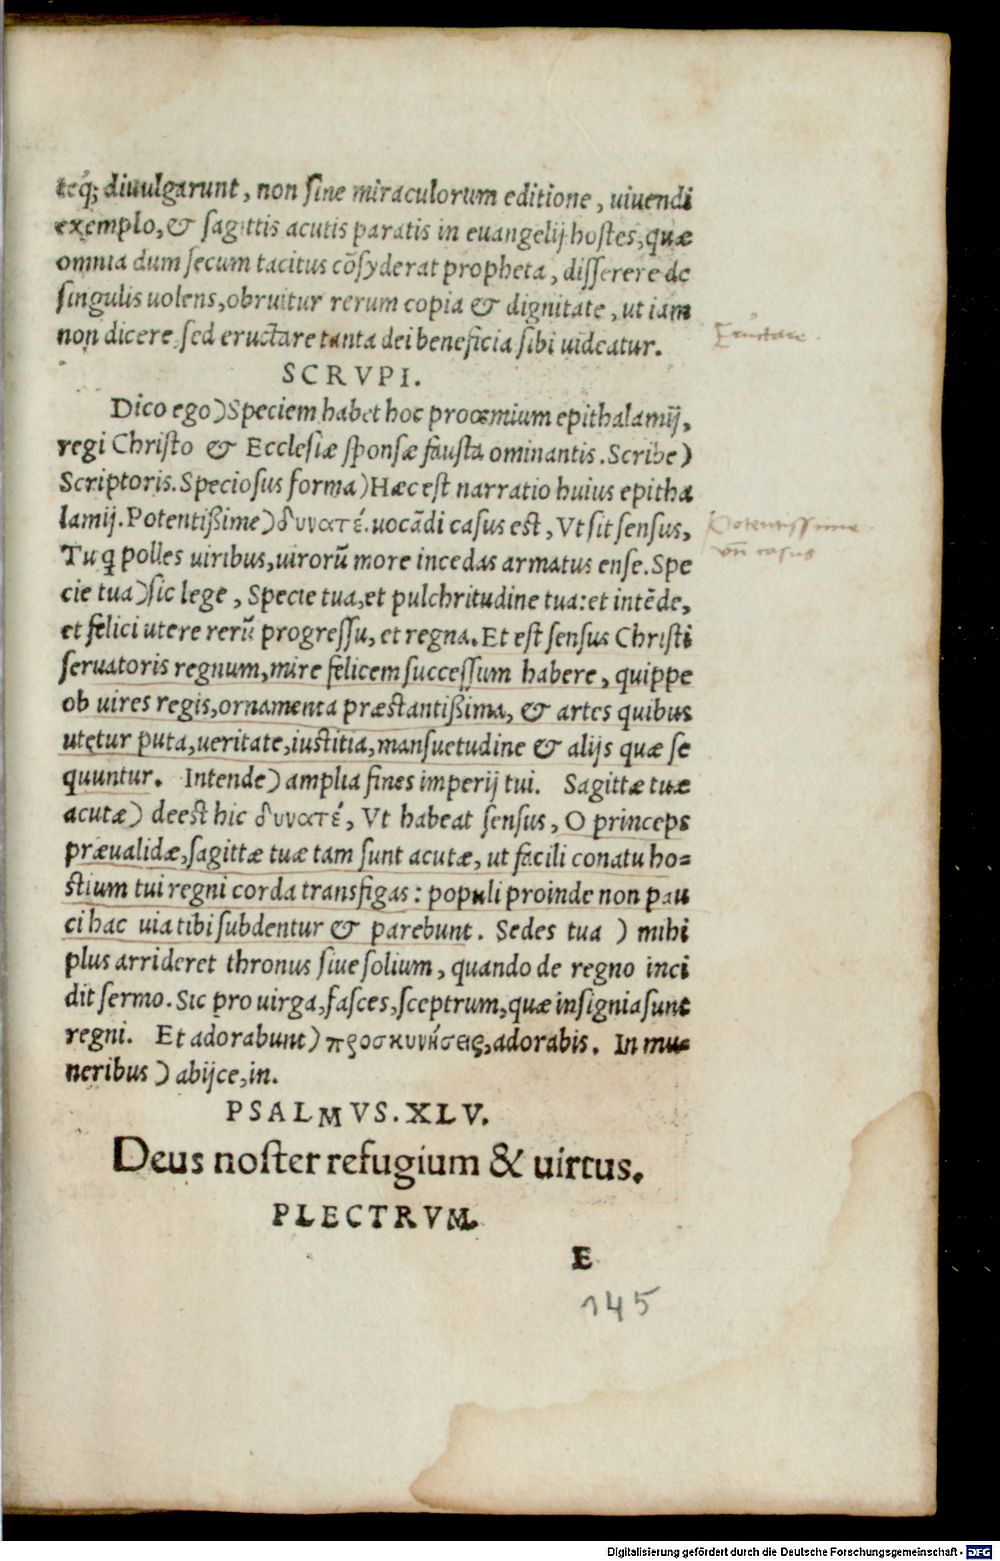 teq́; diuulgarunt, non ſine miraculorum editione, uiuendi
exemplo, & ſagittis acutis paratis in euangelij hoſtes, quæ
omnia dum ſecum tacitus cõſyderat propheta, diſſerere de
ſingulis uolens, obruitur rerum copia & dignitate, ut iam
non dicere ſed eructare tanta dei beneficia ſibi uideatur.
Eructare.
SCRVPI.
Dico ego) Speciem habet hoc proœmium epithalamij,
regi Chriſto & Eccleſiæ ſponſæ fauſta ominantis. Scribe)
Scriptoris. Specioſus forma) Hæc eſt narratio huius epitha
lamij. Potentißime) δυνατέ. uocãdi caſus eſt, Vt ſit ſenſus,
Potentissime
Tu q̃ polles uiribus, uirorũ more incedas armatus enſe. Spe
casus
cie tua) ſic lege, Specie tua, et pulchritudine tua: et intẽde,
et felici utere rerũ progreſſu, et regna. Et eſt ſenſus Chriſti
ſeruatoris regnum, mire felicem ſucceſſum habere, quippe
ob uires regis, ornamenta præſtantißima, & artes quibus
utetur puta, ueritate, iuſtitia, manſuetudine & alijs quæ ſe
quuntur. Intende) amplia fines imperij tui. Sagittæ tuæ
acutæ) deeſt hic δυνατέ, Vt habeat ſenſus, O princeps
præualidæ, ſagittæ tuæ tam ſunt acutæ, ut facili conatu ho=
ſtium tui regni corda transfigas: populi proinde non pau
ci hac uia tibi ſubdentur & parebunt. Sedes tua ) mihi
plus arrideret thronus ſiue ſolium, quando de regno inci
dit ſermo. Sic pro uirga, faſces, ſceptrum, quæ inſignia ſunt
regni. Et adorabunt) προσκυνήσεις, adorabis. In mu=
neribus ) abijce, in.
PSALMVS. XLV.
Deus noſter refugium & uirtus.
PLECTRVM.
E
145
Digitalisierung gefördert durch die Deutsche Forschungsgemeinschaft - DFG